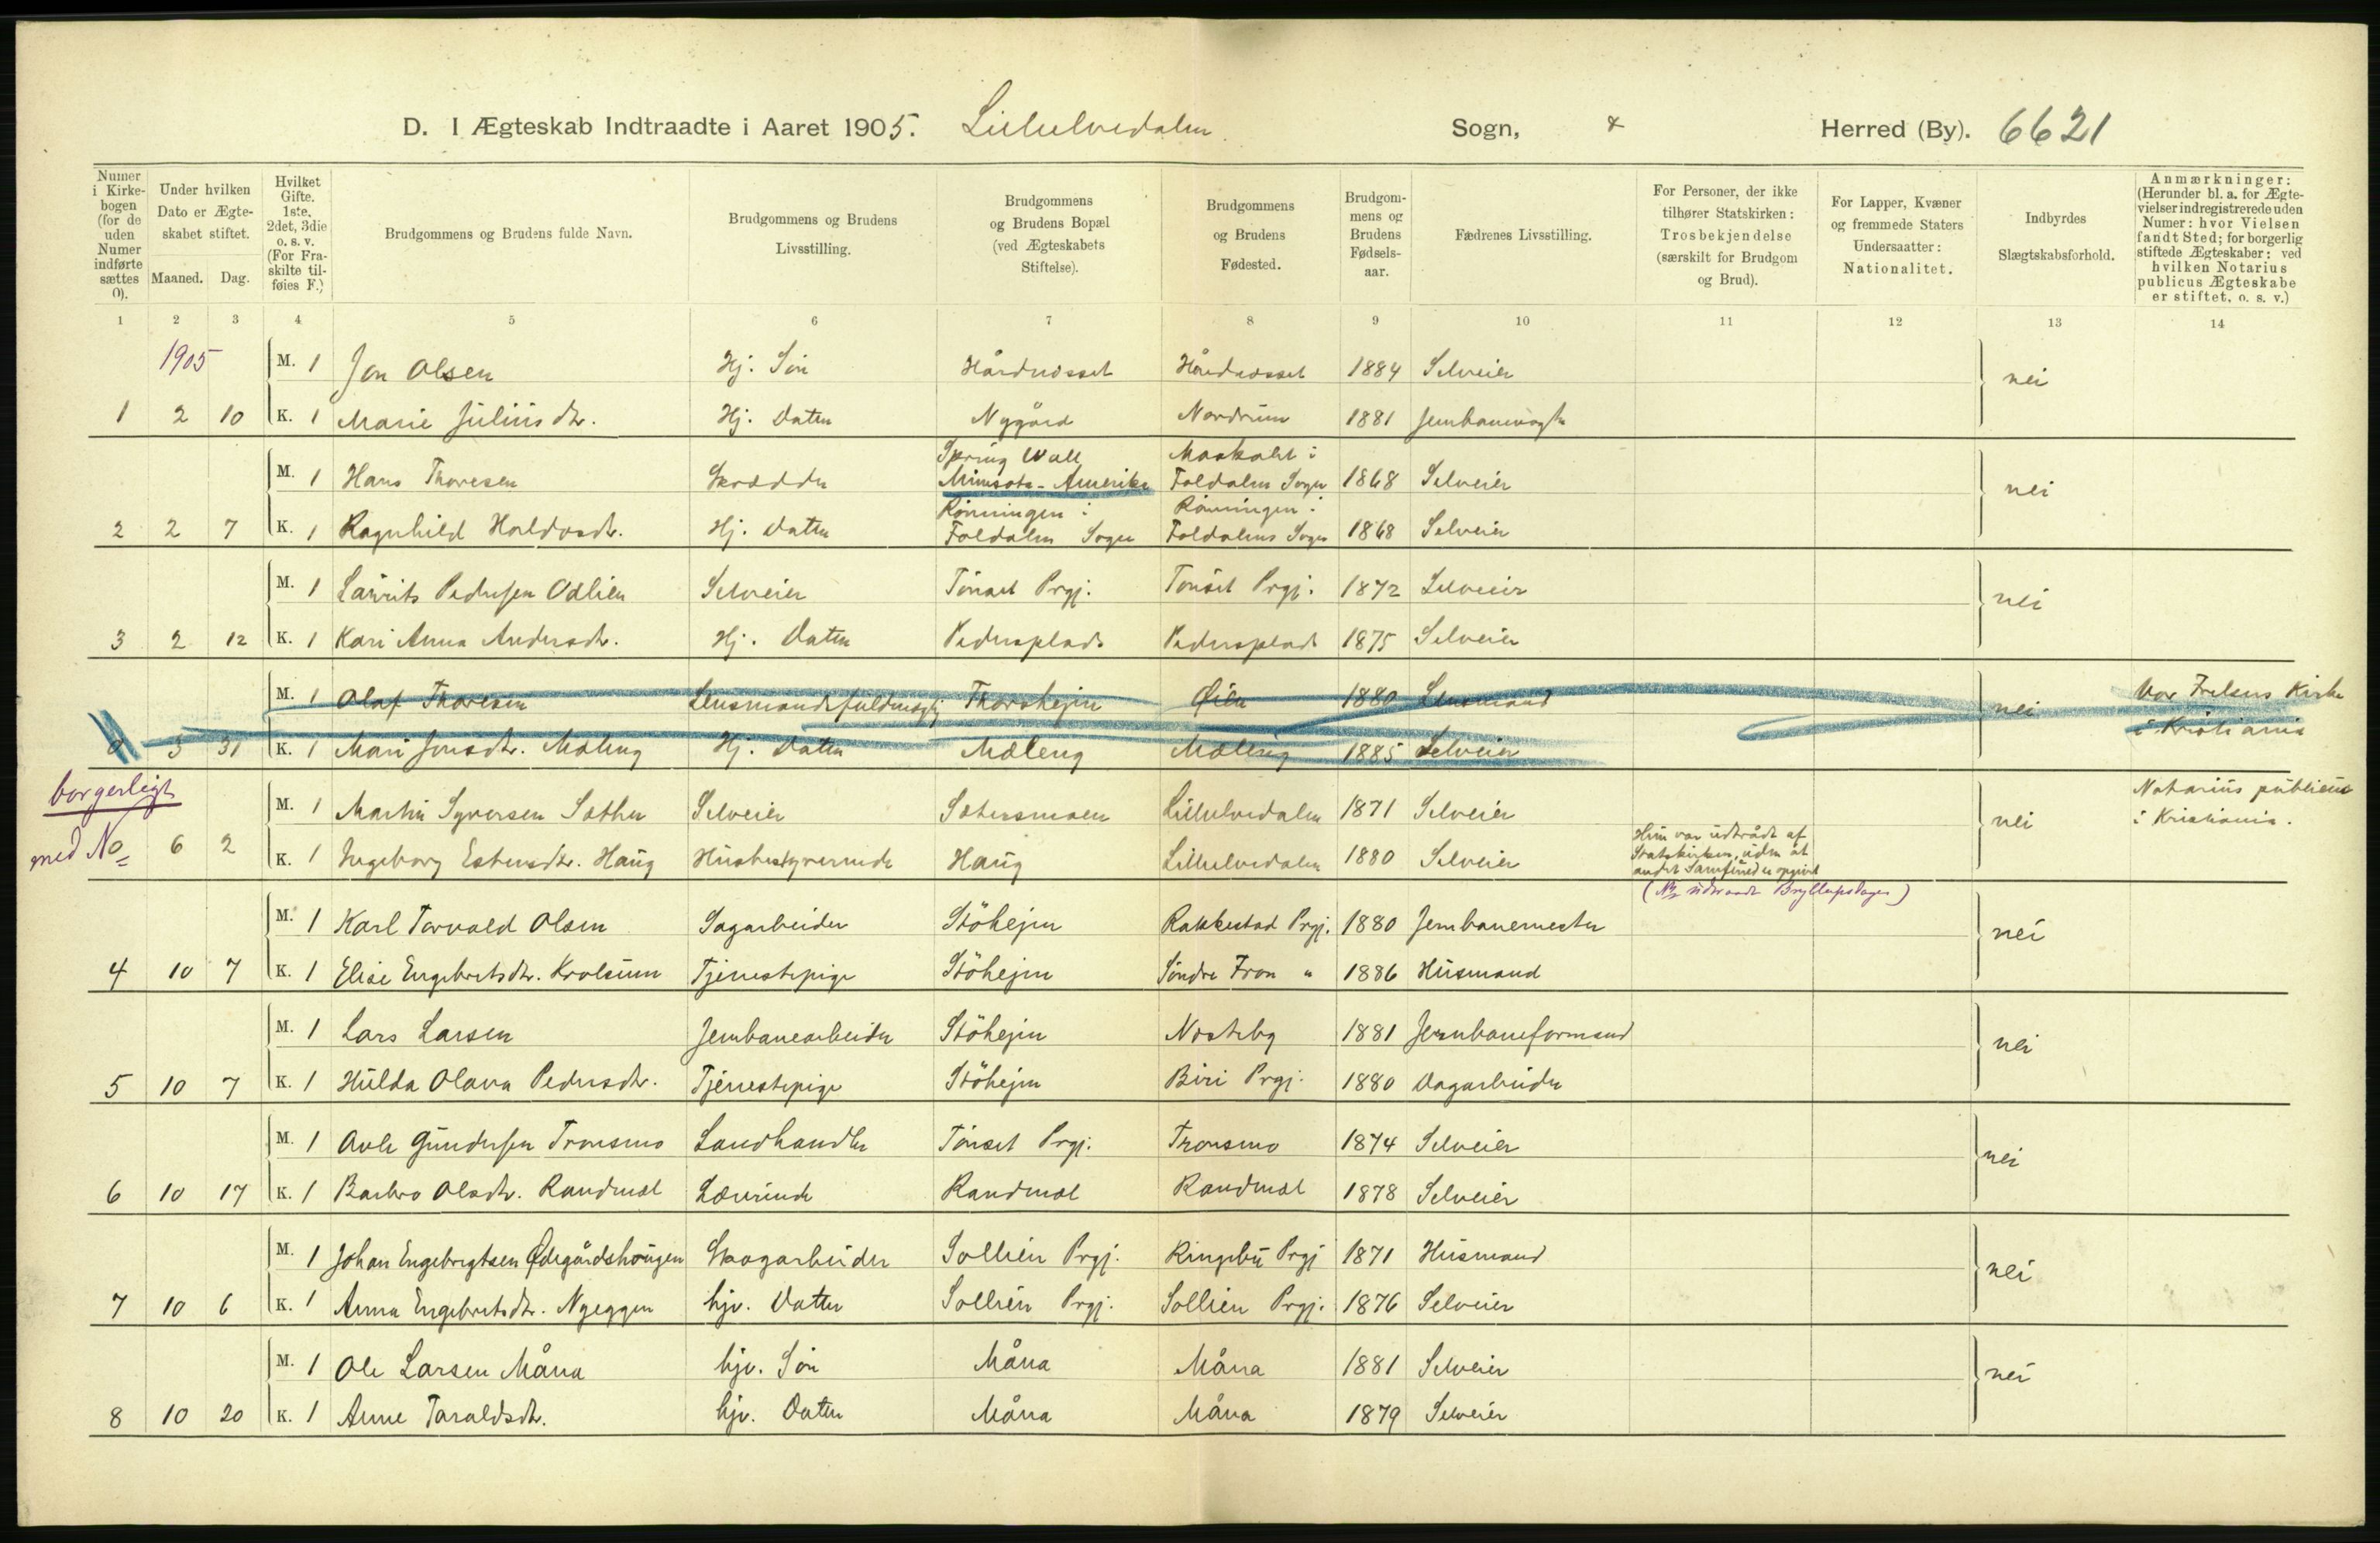 D. I Ægteskab Indtraadte i Aaret 1905. Lilleelvedalen Sogn, Herred (By). 6621
Numer i Kirke-bogen (for de uden Numer indførte sættes 0).
Under hvilken Dato er Ægte-skabet stiftet.
Maaned. Dag.
Hvilket Gifte. 1ste, 2det, 3die o. s. v. (For Fra-skilte til-føies F.)
Brudgommens og Brudens fulde Navn.
Brudgommens og Brudens Livsstilling.
Brudgommens og Brudens Bopæl (ved Ægteskabets Stiftelse).
Brudgommens og Brudens Fødested.
Brudgom-mens og Brudens Fødsels-aar.
Fædrenes Livsstilling.
For Personer, der ikke tilhører Statskirken: Trosbekjendelse (særskilt for Brudgom og Brud).
For Lapper, Kvæner og fremmede Staters Undersaatter: Nationalitet.
Indbyrdes Slægtskabsforhold.
Anmærkninger: (Herunder bl. a. for Ægte-vielser indregistrerede uden Numer: hvor Vielsen fandt Sted; for borgerlig stiftede Ægteskaber: ved hvilken Notarius publicus Ægteskabe er stiftet, o. s. v.)
1 2 3 4 5 6 7 8 9 10 11 12 13 14
1905 M. 1 Jon Olsen Hj. Søn Hårdnosset Hårdnosset 1884 Selveier nei
1 2 10 K. 1 Marie Juliusdtr. Hj. Datter Nygård Nordrum 1881 Jernbanevogter
Spring Wall Moskald i
M. 1 Hans Thoresen Skrædder Minisota - Amerika Foldalens Sogn 1868 Selveier nei
Rønningen i Rønningen i
2 2 7 K. 1 Ragnhild Haldosdtr. Hj. Datter Foldalens Sogn Foldalens Sogn 1868 Selveier
M. 1 Laurits Pedersen Odlien Selveier Tönset Prgj. Tönset Prgj. 1872 Selveier nei
3 2 12 K. 1 Kari Anna Andersdtr. Hj. Datter Pedersplads Pedersplads 1875 Selveier
M. 1 Olaf Thoresen Lensmandsfuldmægtig Thorshejm Øien 1880 Lensmand nei Vor Frelsers Kirke
0 3 31 K. 1 Mari Jonsdtr. Mæleng Hj. Datter Mæleng Mæleng 1885 Selveier i Kristiania
borgerligt
M. 1 Martin Syversen Sæther Selveier Sætersmoen Lilleelvedalen 1871 Selveier nei Notarius publicus
i Kristiania.
med No 6 2 K. 1 Ingeborg Estensdtr. Haug Husbestyrerinde Haug Lilleelvedalen 1880 Selveier Hun var udtrådt af
Statskirken, uden at
andet Samfund er opgivet
udtraadt Bryllupsdagen)
M. 1 Karl Torvald Olsen Sagarbeider Stöhejm Rakkestad Prgj. 1880 Jernbanemester nei
4 10 7 K. 1 Elise Engebretsdtr. Kvolsum Tjenestepige Stöhejm Söndre Fron " 1886 Husmand
M. 1 Lars Larsen Jernbanearbeider Stöhejm Nosteby 1881 Jernbaneformand nei
5 10 7 K. 1 Hulda Olava Pedersdtr. Tjenestepige Stöhejm Biri Prgj. 1880 Dagarbeider
M. 1 Avle Gundersen Tronsmo Landhandler Tönset Prgj. Tronsmo 1874 Selveier nei
6 10 17 K. 1 Barbro Olsdtr. Randmæl Lærerinde Randmæl Randmæl 1878 Selveier
M. 1 Johan Engebrigtsen Ødegårdshaugen Skogarbeider Sollien Prgj. Ringebu Prgj 1871 Husmand nei
7 10 6 K. 1 Anna Engebretsdtr. Nyeggen hjv. Datter Sollien Prgj. Sollien Prgj. 1876 Selveier
M. 1 Ole Larsen Måna hjv. Søn Måna Måna 1881 Selveier nei
8 10 20 K. 1 Anne Taraldsdtr. hjv. Datter Måna Måna 1879 Selveier